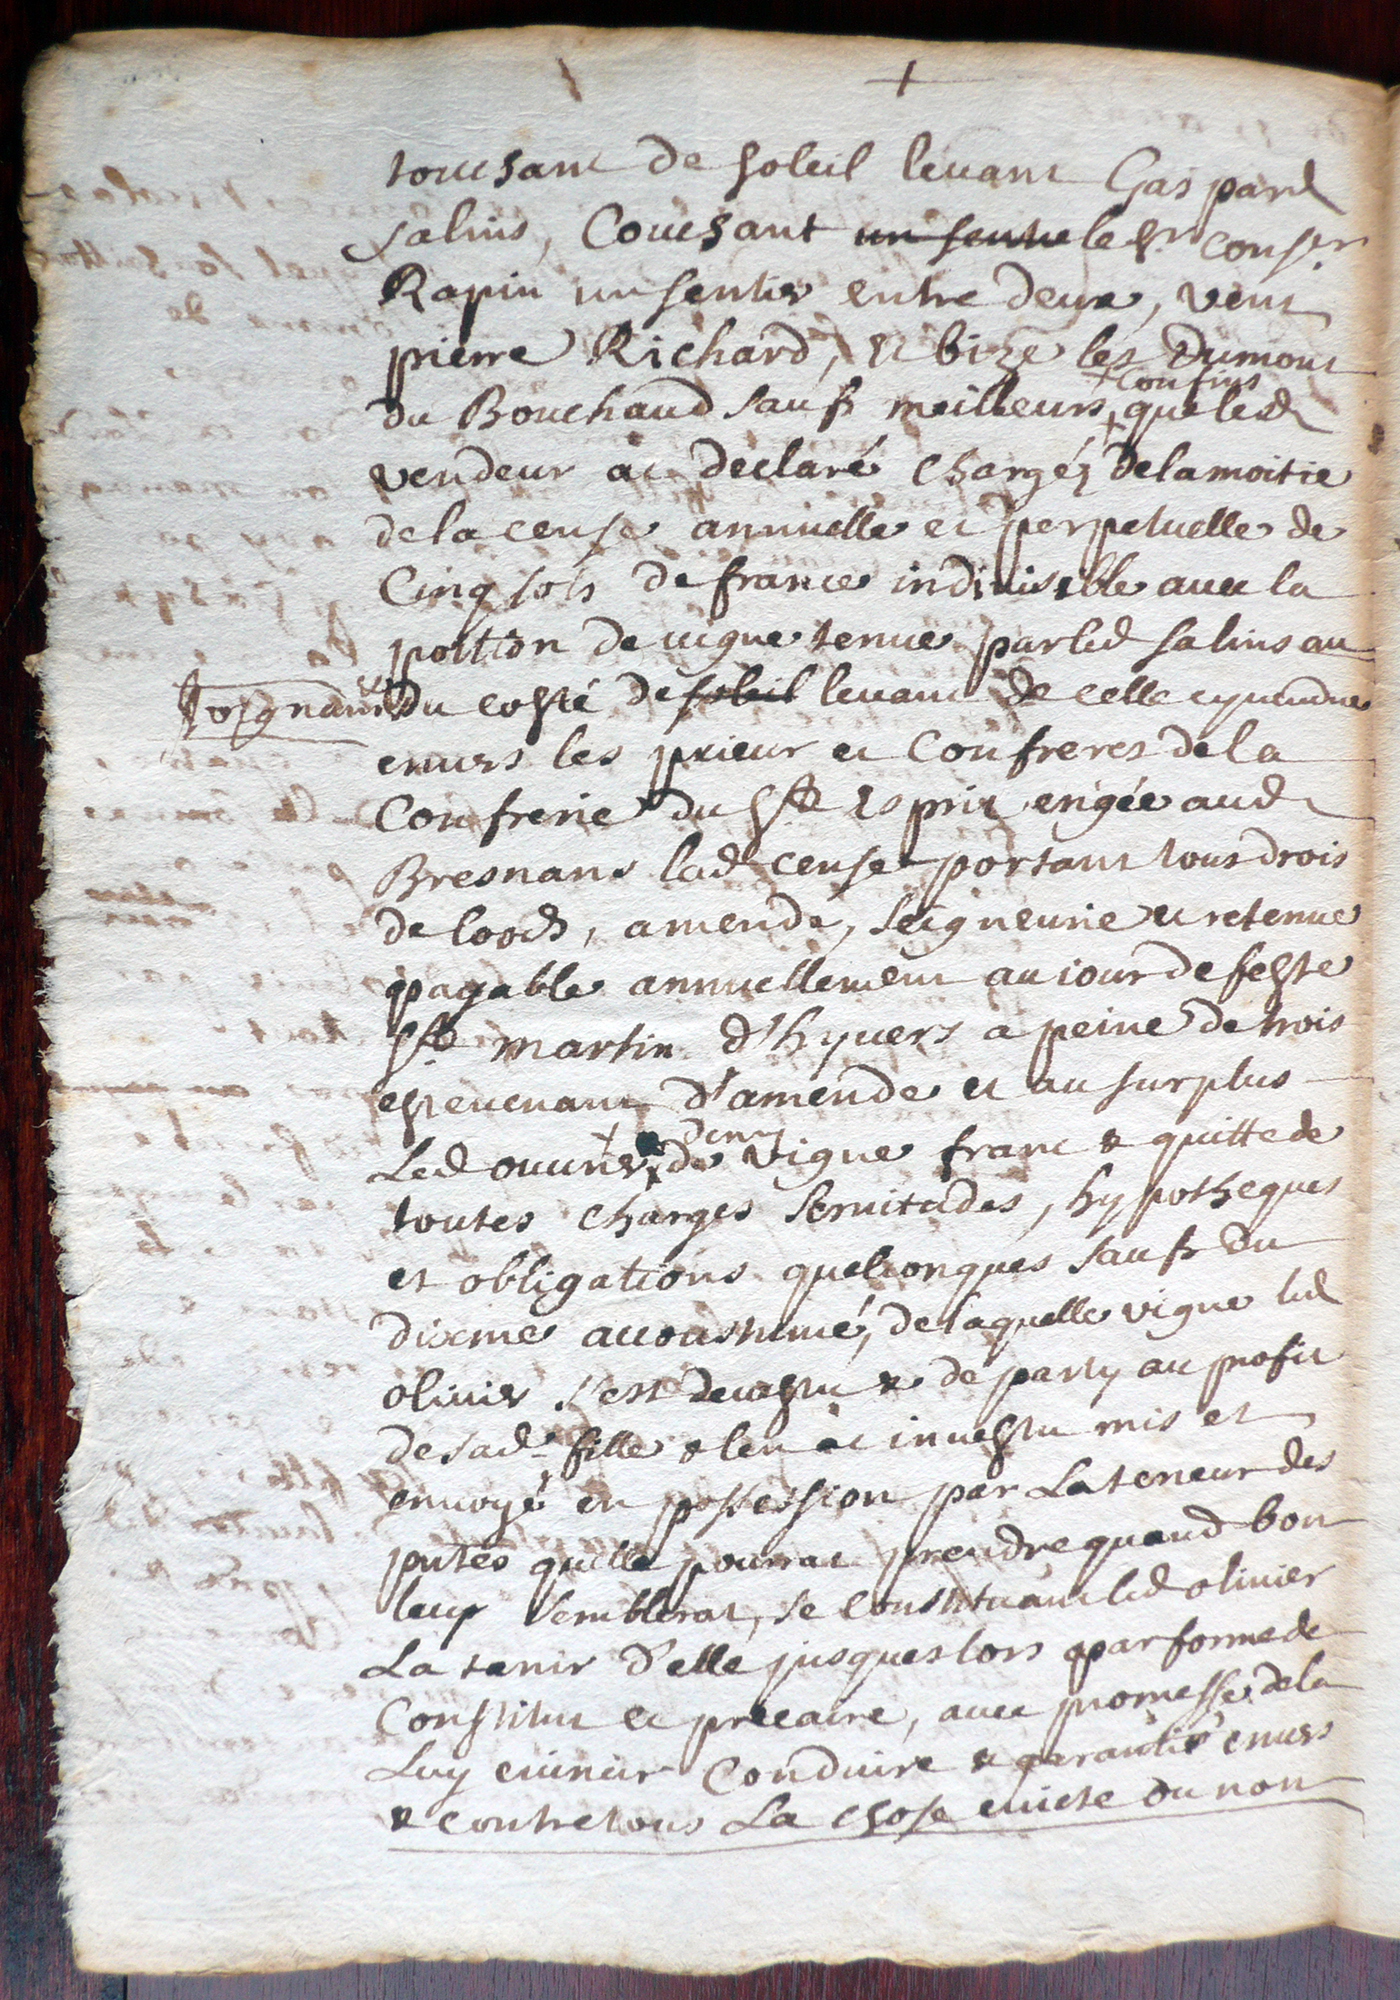 +
touchant de soleil levant Gaspard
Salins, Couchant un sentie le sr. consr.
Rapin un sentier entre deux, vent
pierre Richard, et bize les Dumont
du Bouchaud sauf meilleurs + confins que led
vendeur at declaré chargéz de la moitie
de la cense annuelle et perpetuelle de
Cinq sols de france indivisible avec la
portion de vigne tenue par led Salins au
Joignant du costé de soleil levant de celle cy vendue
envers les prieur et Confreres de la
Confrerie du St Esprit erigée aud
Bresnans lad cense portant tous drois
de loods, amende, seigneurie et retenue
payable annuellement au iour de feste
St martin d'hyvers a peine de trois
estevenant d'amende et au surplus
Led ouvrier + demy de vigne franc & quitte de
toutes charges servitudes, hypotheques
et obligations quelconques sauf du
dixme accoustumé, de laquelle vigne led
olivier s'est devestu & de party au profit
de sad. fille & len at investu mis et
envoyé en possession par La teneur des
putes quelle pourrat prendre quand bon
leur semblerat, se constituant led olivier
La tenir d'elle jusques lors par forme de
Constitut et precaire, avec promesse de la
Luy maintenir Conduire & garantir envers
& contre tous La chose evicte ou non